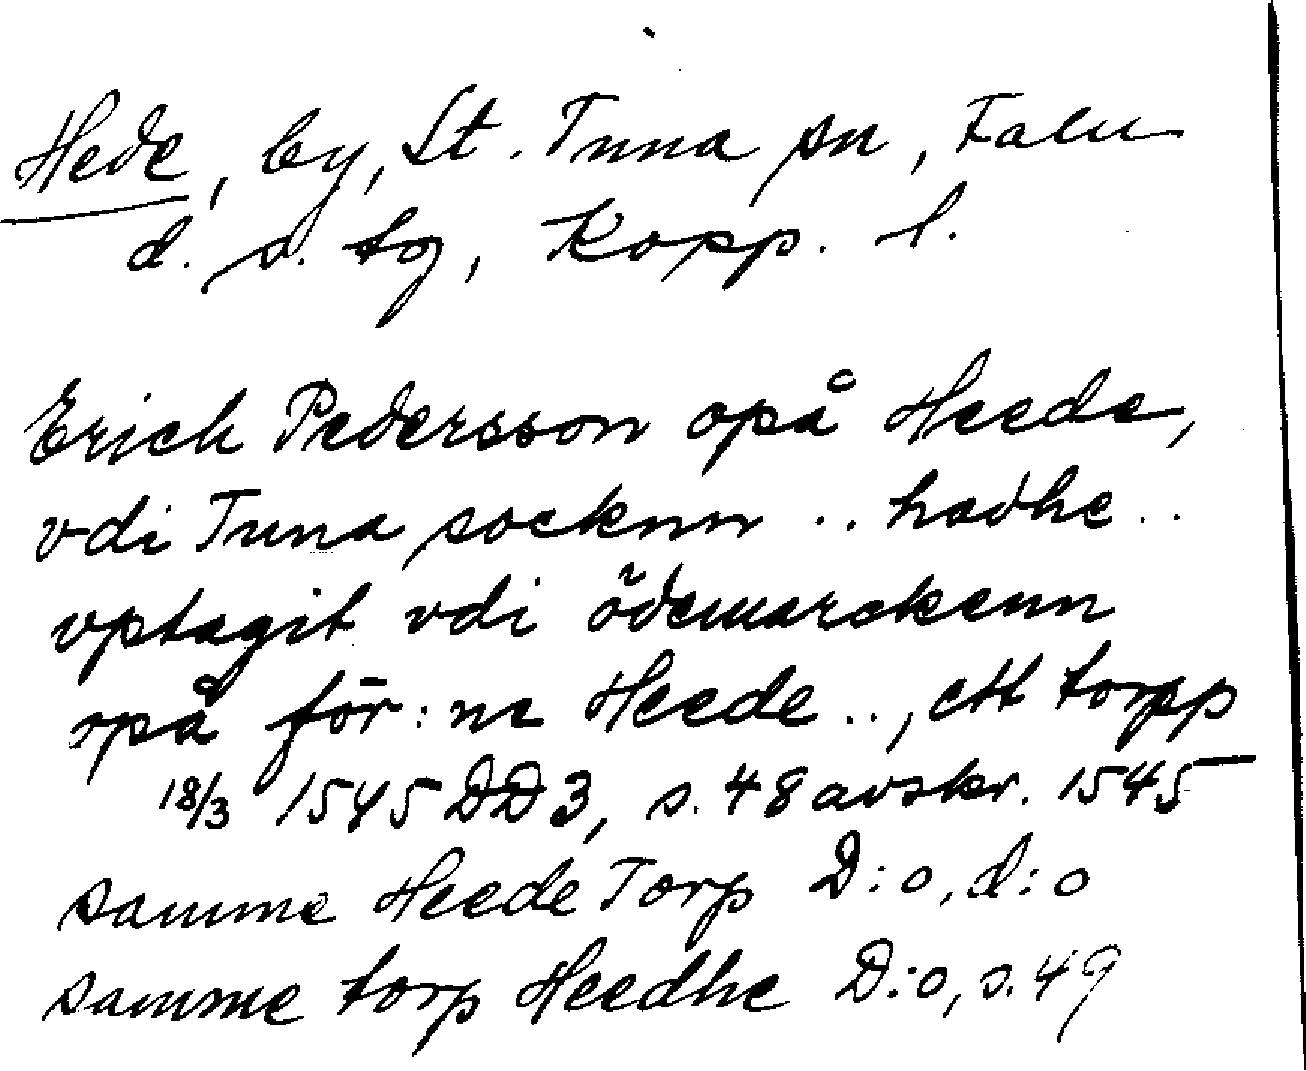 Hede, by, St. Tuna sn, Falu
d. s. tg, Kopp. l.
Erich Pedersson opå Heede,
vdi Tuna socknn .. hadhe ..
vptagit vdi ödemarckenn
opå för:ne Heede .., ett torpp
18/3 1545 DD 3, s. 48 avskr. 1545
samme Heede Torp D:o, d:o
samme torp Heedhe D:o, s. 49